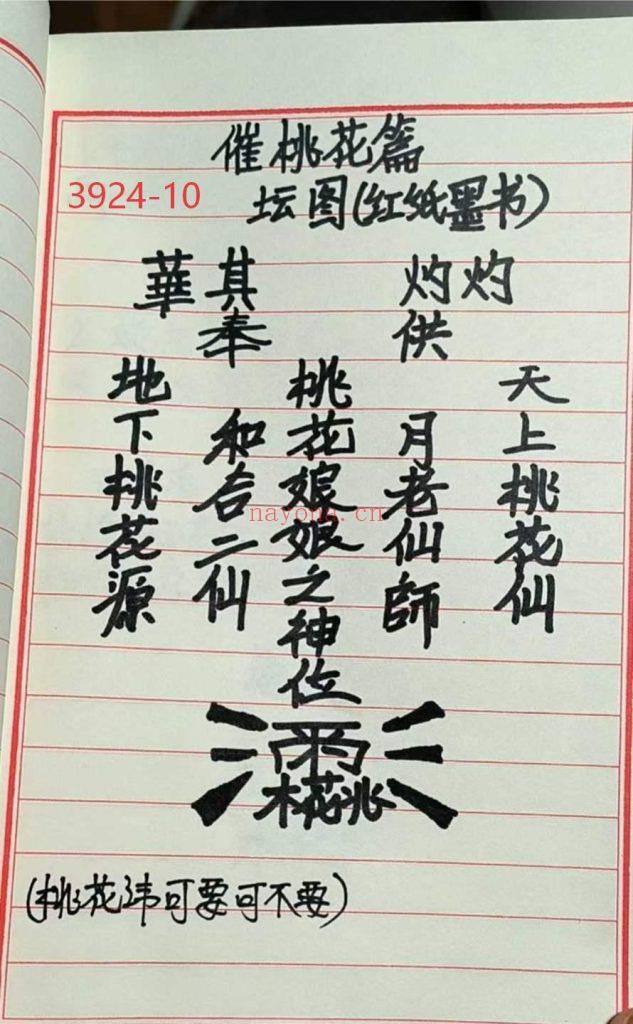 催桃花篇
3924-10
坛图(红纸墨书)
灼灼
其華
供奉
天上桃花仙
月老仙師
桃花娘娘之神位
和合二仙
地下桃花源
nayona.cn
木花兆
(桃花讳可要可不要)